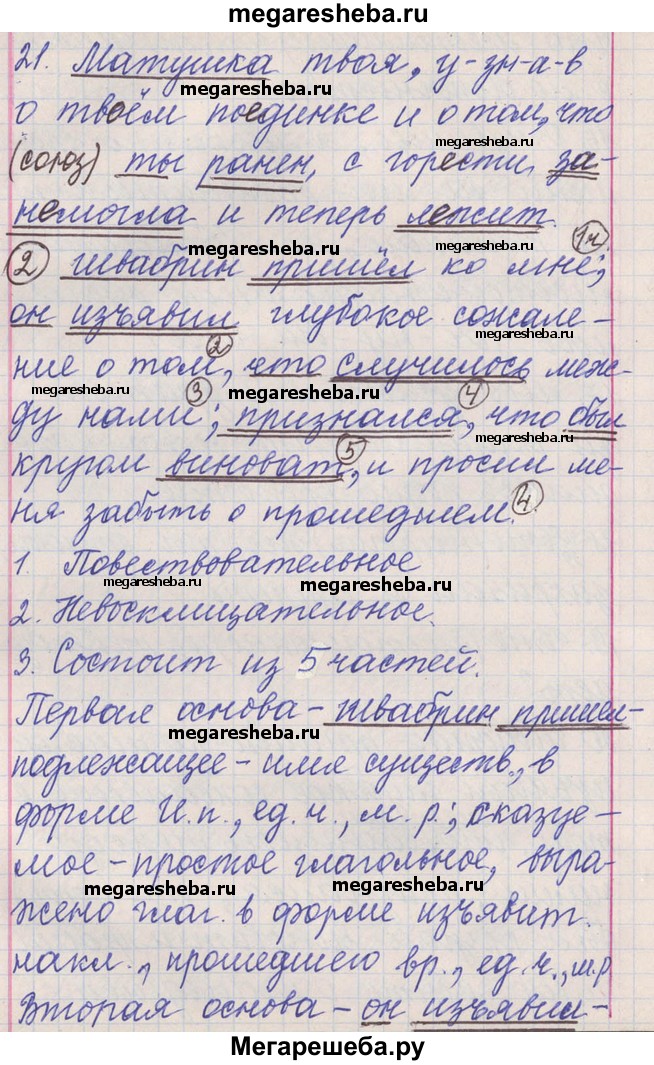 megaresheba.ru
21. Матушка твоя, у-зн-а-в
megaresheba.ru
о твоём поединке и о том, что
megaresheba.ru
(союз) ты ранен, с горести за-
megaresheba.ru
немогла и теперь лежит.
megaresheba.ru
1ч.
2 Швабрин пришёл ко мне;
megaresheba.ru
он изъявил глубокое сожале-
ние о том, 2 что случилось меж-
megaresheba.ru
megaresheba.ru
ду нами 3; признался 4, что был
megaresheba.ru
кругом виноват 5, и просил ме-
ня забыть о прошедшем. 4
1. Повествовательное
megaresheba.ru
megaresheba.ru
2. Невосклицательное.
3. Состоит из 5 частей.
Первая основа - Швабрин пришел -
megaresheba.ru
подлежащее - имя существ., в
форме И.п., ед.ч., м.р.; сказуе-
мое - простое глагольное, выра-
megaresheba.ru
megaresheba.ru
жено глаг. в форме изъявит.
накл., прошедшего вр., ед.ч., м.р
Вторая основа - он изъявил -
Мегарешеба.ру